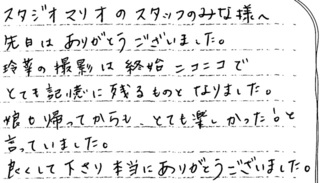 スタジオマリオのスタッフのみな様へ
先日はありがとうございました。
玲菜の撮影は終始ニコニコで
とても記憶に残るものとなりました。
娘も帰ってからも、とても楽しかった!と
言っていました。
良くして下さり本当にありがとうございました。